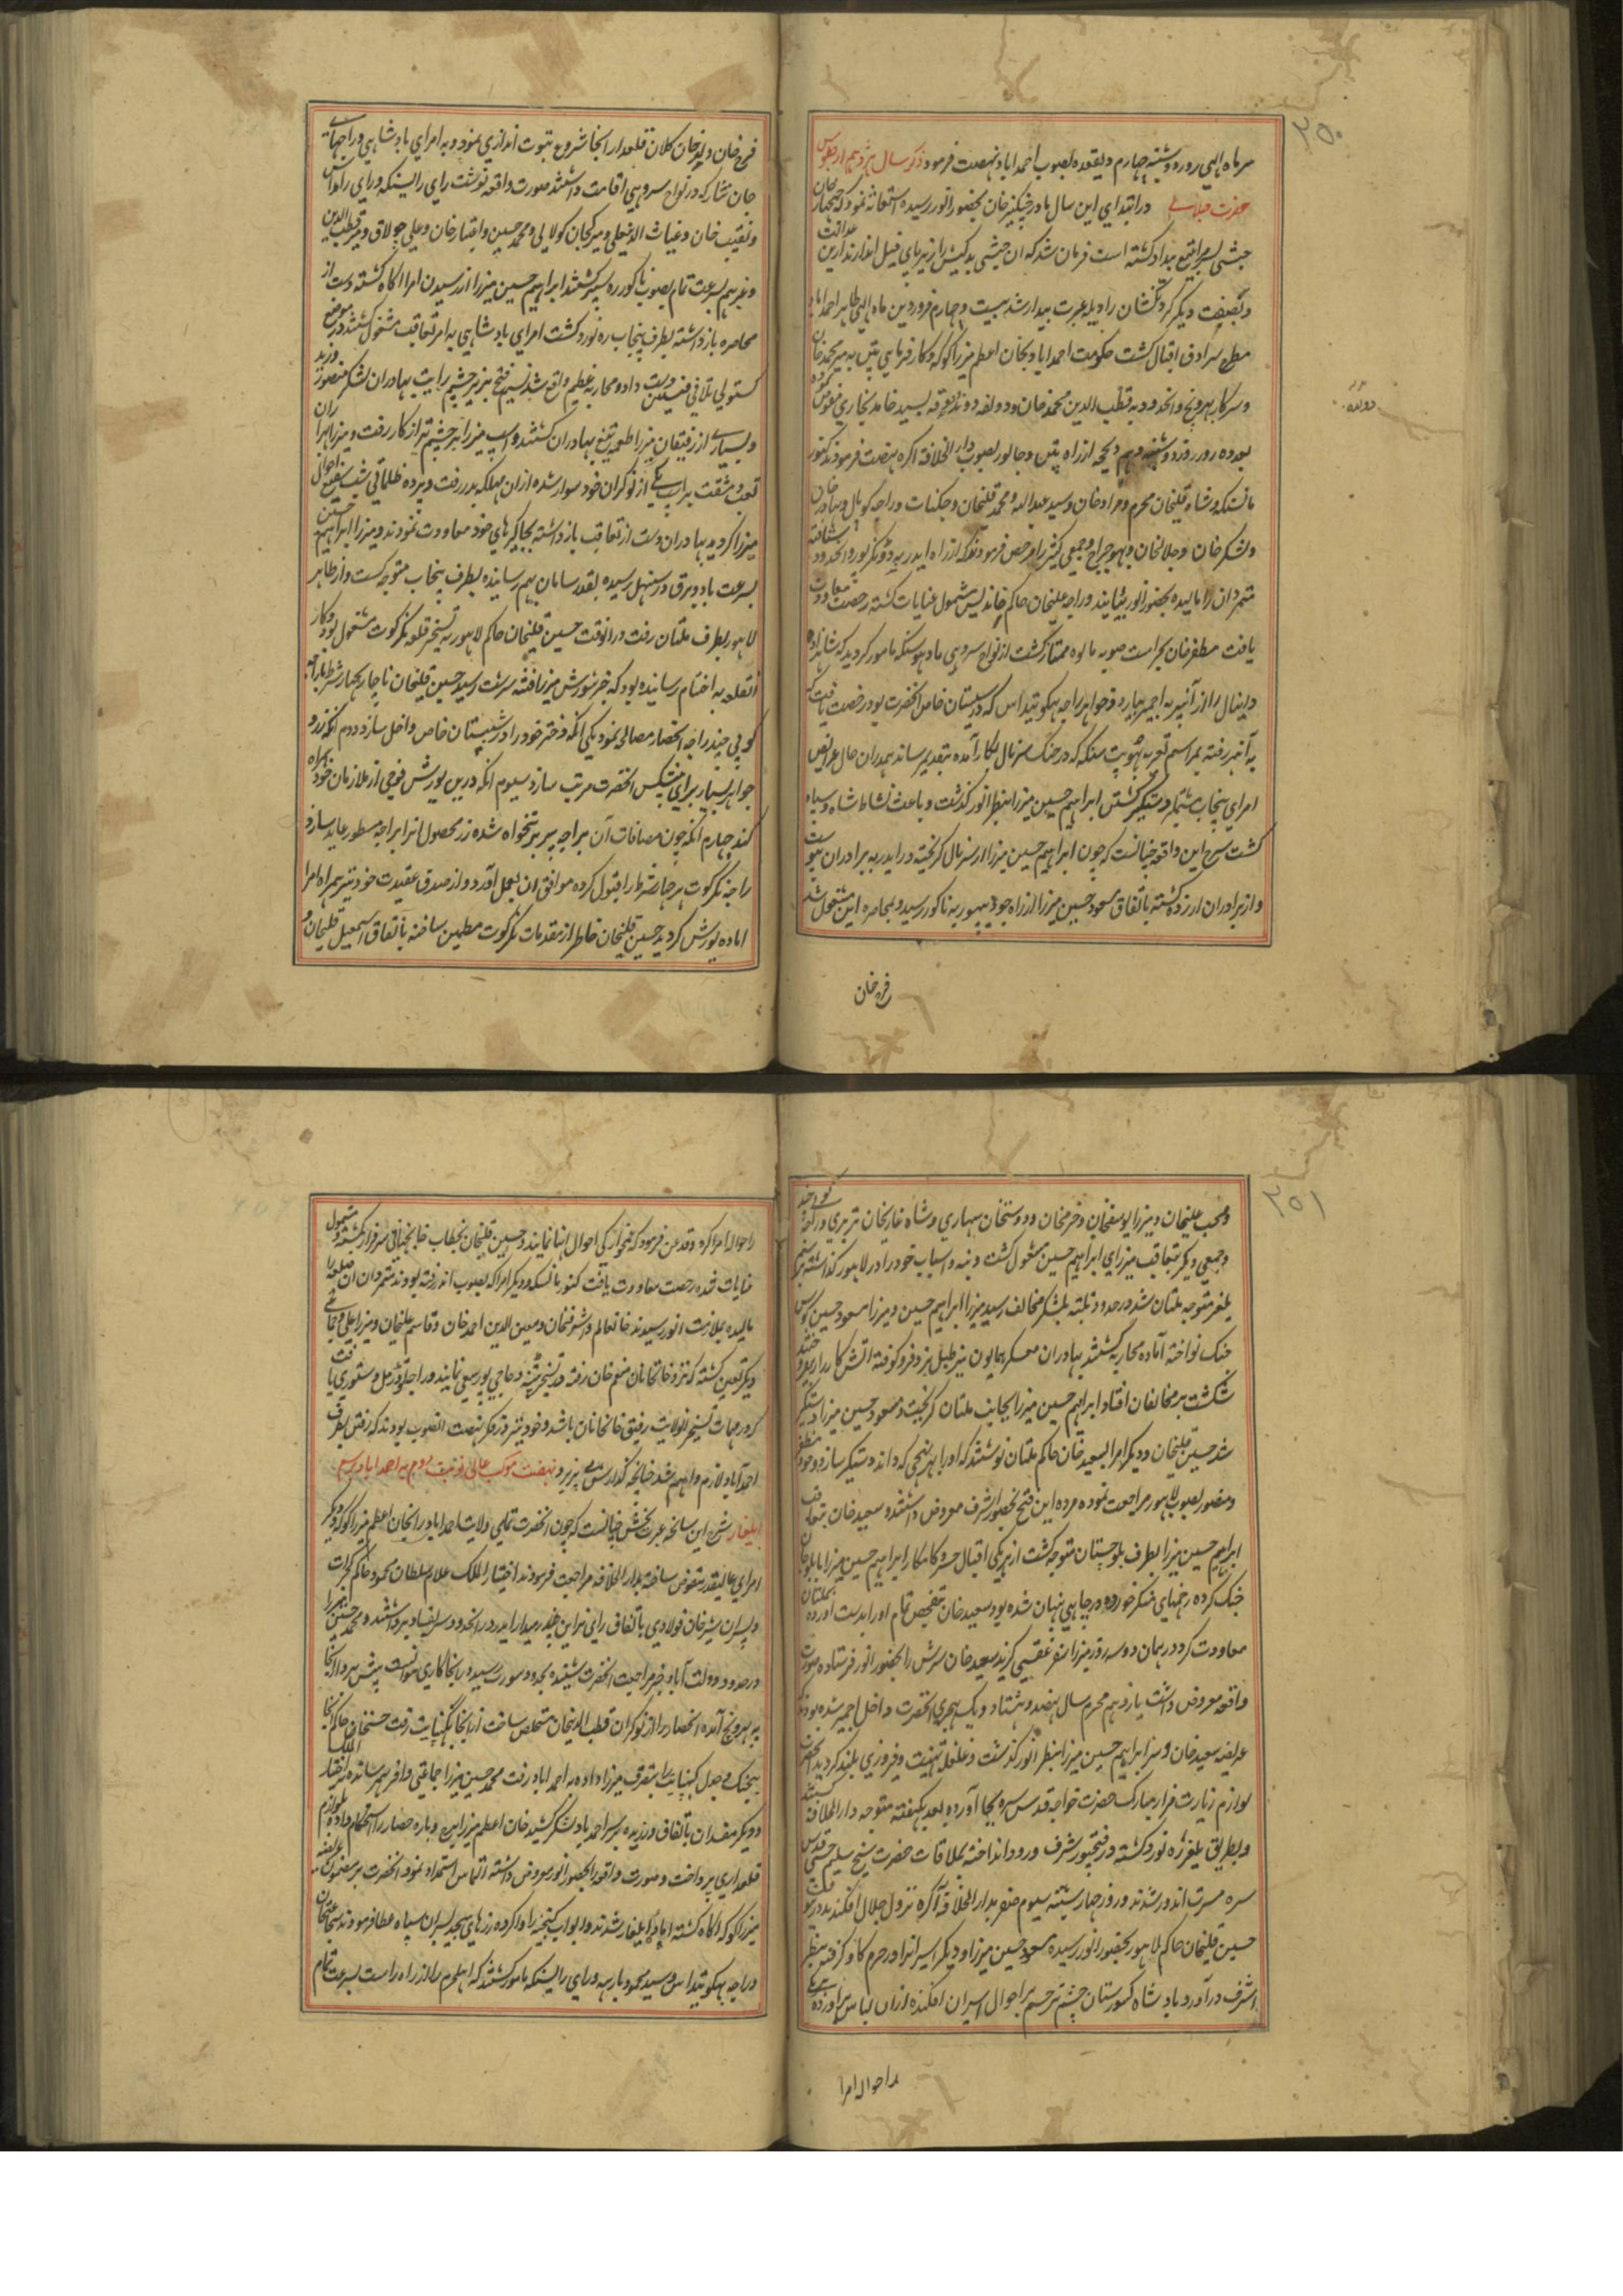 ۲۵۰
سرماه الهي روز دوشنبه چهارم ذيقعده بصوب احمداباد نهضت فرمود ذكر سال هژدهم از جلوس
حضرت جلالي در ابتداي اين سال مادر چنگيز خان بحضور انور رسيده استغاثه نمود كه ججهار خان
حبشي پسرم را بتيغ بيداد كشته است فرمان شد كه ان حبشي بدكيش را زير پاي فيل اندازند ازين عدالت
ديگر گردنكشان را ديده عبرت بيدار شد بيست و چهارم فروردين ماه الهي ظاهر احمداباد
مطرح سرادق اقبال گشت حكومت احمداباد بخان اعظم ميرزا كوكه و كارفرمايي پتن به مير محمد خان
و سركار بهروچ و انحدود به قطب الدين محمد خان و دولقه و دندوقه بسيد حامد بخاري مفوض نموده
دولقه
بود روز دوشنبه دهم ذيحجه از راه پتن و جالور بصوب دار الخلافه اكره نهضت فرمودند كنور
مانسنكه و شاه قليخان محرم و مراد خان و سيد عبد الله و محمد قليخان و جكنات و راجه كوپال و بهادر خان
و لشكر خان و جلالخان و بهوجراج و جمعي كثير را مرخص فرمودند كه از راه ايدر به دونگرپور و انحدود شتافته
متمردان را ماليده بحضور انور بيايند و راجه عليخان حاكم خانديس مشمول عنايات گشته رخصت معاودت
يافت مظفر خان بحراست صوبه مالوه ممتاز گشت از نواح سروهي مادهوسنكه مامور گرديد كه شاهزاده
دانيال را از آنبير به اجمير بيارد و خواهر راجه بهگونتداس كه در شبستان خاص انحضرت بود رخصت يافت كه
به آنبير رفته بمراسم تعزيه بهوپت سنكه كه در جنگ سرنال بكار آمده بتقديم رساند همدران حال عرايض
امراي پنجاب مشتمل بر دستگير گشتن ابراهيم حسين ميرزا بنظر انور گذشت و باعث نشاط شاه و سپاه
گشت شرح اين واقعه چنانست كه چون ابراهيم حسين ميرزا از سرنال گريخته در ايدر به برادران پيوست
و از برادران ازرده گشته باتفاق مسعود حسين ميرزا از راه جودهپور به ناگور رسيد و بمحاصره اين مشغول شد
فرخ خان
فرخ خان ولد خان كلان قلعدار انجا شروع بتوپ اندازي نمود و به امراي بادشاهي و راجهاي
جان نثار كه در نواح سروهي اقامت داشتند صورت واقعه نوشت راي رايسنكه و راي رامداس
و نقيب خان و غياث الدين علي و ميرك خان كولابي و محمد حسين و اعتبار خان و علي جولاق و مير قطب الدين
و غيرهم بسرعت تمام بصوب ناگور ره سپر گشتند ابراهيم حسين ميرزا از رسيدن امرا اگاه گشته دست از
محاصره بازداشته بطرف پنجاب ره نورد گشت امراي بادشاهي به امر تعاقب مشغول گشتند در موضع
كستولي تلاقي فئتين دست داد و محاربه عظيم واقع شد نسيم فتح بر پرچم رايت بهادران لشكر منصور وزيد
و بسياري از رفيقان ميرزا طعمه تيغ بهادران گشتند و اسپ ميرزا بزخم تير از كار رفت و ميرزا بهزاران
تعب و مشقت بر اسپ يكي از نوكران خود سوار شده از ان مهلكه بدر رفت و پرده ظلماتي شب شفيع احوال
ميرزا گرديد بهادران دست از تعاقب بازداشته بجاگيرهاي خود معاودت نمودند و ميرزا ابراهيم حسين
بسرعت باد و برق در سنبهل رسيده بقدر سامان بهم رسانيده بطرف پنجاب متوجه گشت و از ظاهر
لاهور بطرف ملتان رفت در انوقت حسين قليخان حاكم لاهور به تسخير قلعه نگركوت مشغول بود و كار
انقلعه به اختتام رسانيده بود كه خبر شورش ميرزا فتنه سرشت رسيد حسين قليخان ناچار بچهار شرط با راجه
گوپي چند راجه انحصار مصالحه نمود يكي انكه دختر خود را در شبستان خاص داخل سازد دوم انكه زر و
جواهر بسيار براي پيشكش انحضرت مرتب سازد سيوم انكه درين يورش فوجي از ملازمان خود همراه
كند چهارم انكه چون مضافات آن براجه بيربر تنخواه شده زر محصول انرا براجه مسطور عايد سازد
راجه نگركوت هر چهار شرط را قبول كرده موافق ان بعمل آورد و از صدق عقيدت خود نيز همراه امرا
اماده يورش گرديد حسين قليخان خاطر از مقدمات نگركوت مطمئن ساخته باتفاق اسمعيل قليخان و
۲۵۱
و محب عليخان و ميرزا يوسفخان و خرم خان و دوستخان سهاري و شاه غازيخان تبريزي و راجه
و جمعي ديگر بتعاقب ميرزاي ابراهيم حسين مشغول گشت و بنه و اسباب خود را در لاهور گذاشته برسم
يلغر متوجه ملتان شد در حدود تلنبه بلشكر مخالف رسيد ميرزا ابراهيم حسين و ميرزا مسعود حسين كوس
جنگ نواخته آماده محاربه گشتند بهادران معسكر همايون نيز طبل نبرد فرو كوفته اتش كارزار افروختند
شكست بر مخالفان افتاد ابراهيم حسين ميرزا بجانب ملتان گريخت و مسعود حسين ميرزا دستگير
شد حسين قليخان و ديگر امرا بسعيد خان حاكم ملتان نوشتند كه او را بهر نهجي كه داند دستگير سازد و خود مظفر
و منصور بصوب لاهور مراجعت نموده مژده اين فتح بحضور اشرف معروض داشتند و سعيد خان بتعاقب
ابراهيم حسين ميرزا بطرف بلوچستان متوجه گشت از نيرنگي اقبال خسرو كامكار ابراهيم حسين ميرزا با بلوچان
جنگ كرده زخمهاي منكر خورده در جاهي پنهان شده بود سعيد خان بتفحص تمام او را بدست آورده بملتان
معاودت كرد در همان دو سه روز ميرزا سفر عقبي گزيد سعيد خان سرش را بحضور انور فرستاده صورت
واقعه معروض داشت يازدهم محرم سال نهصد و هشتاد و يك هجري انحضرت داخل اجمير شده بودند كه
عرايضه سعيد خان و سر ابراهيم حسين ميرزا بنظر انور گذشت و غلغله تهنيت و فيروزي بلند گرديد انحضرت
لوازم زيارت مزار مبارك حضرت خواجه قدس سره بجا آورده بعد يكهفته متوجه دار الخلافه گشتند
و بطريق يلغر ره نورد گشته در فتحپور شرف ورود انداخته بملاقات حضرت شيخ سليم چشتي قدس
سره مسرت اندوز شدند و روز چهارشنبه سيوم صفر بدار الخلافه آگره نزول جلال افكندند درينولا
حسين قليخان حاكم لاهور بحضور انور رسيده مسعود حسين ميرزا و ديگر اسيرانرا در چرم گاو گرفته بنظر
اشرف درآورد بادشاه كشورستان چشم ترحم بر احوال اسيران افكنده ازان لباس برآورده
احوال امرا
را حواله امرا كرده و قدغن فرمود كه غمخوارگي احوال اينها نمايند و حسين قليخان بخطاب خانجهاني سرفراز گشته و مشمول
عنايات شده رخصت معاودت يافت كنور مانسنكه و ديگر امرا كه بصوب ايدر رفته بودند متمردان ان ضلعه را
ماليده بملازمت انور رسيدند خانعالم و اشرفخان و معين الدين احمد خان و قاسم عليخان و ميرزا علي و جماعه
ديگر تعين گشته كه نزد خانخانان منعم خان رفته در تسخير پتنه و حاجي پور سعي نمايند و راجه تودرمل دستوري يافت
كه در مهمات تسخير انولايت رفيق خانخانان باشد و خود نيز در فكر نهضت انصوب بودند كه رفتن بطرف
احمداباد لازم و اهم شد چنانچه گذارش مي پزيرد نهضت موكب عالي نوبت دوم به احمداباد برسم
ايلغار شرح اين سانحه عبرت بخش چنانست كه چون انحضرت تمامي ولايت احمداباد را بخان اعظم ميرزا كوكه و ديگر
امراي عاليقدر تفويض ساخته بدار الخلافه مراجعت فرمودند اختيار الملك غلام سلطان محمود حاكم گجرات
و پسران شير خان فولادي باتفاق رائي نراين زميندار ايدر در انحدود سر بفساد برداشتند و محمد حسين ميرزا
در حدود دولت آباد خبر مراجعت انحضرت شنيده بحدود سورت رسيده و انجا كاري نتوانست پيش برد از انجا
به بهروچ آمده انحصار را از نوكران قطب الدينخان مستخلص ساخت از انجا بكنبايت رفت حسنخان حاكم انجا
بيجنگ و جدل كنبايت را بتصرف ميرزا داده به احمداباد رفت محمد حسين ميرزا جماعتي وافر بهم رسانده اختيار الملك
و ديگر مفسدان باتفاق ورزيده بر سر احمداباد لشكر كشيد خان اعظم ميرزا برج و باره حصار را استحكام داده بلوازم
قلعداري پرداخت و صورت واقعه بحضور انور معروض داشته التماس استمداد نمود انحضرت بر مضمون عرايضه
ميرزا كوكه اگاه گشته اماده ايلغار شدند و ابواب گنجينه را وا كرده زرهاي بيحد بسران سپاه عطا فرمودند شجاعتخان
و راجه بهگونتداس و سيد محمود بارهه و راي رايسنكه مامور گشتند كه اهل حرم را از راه راست بسرعت تمام